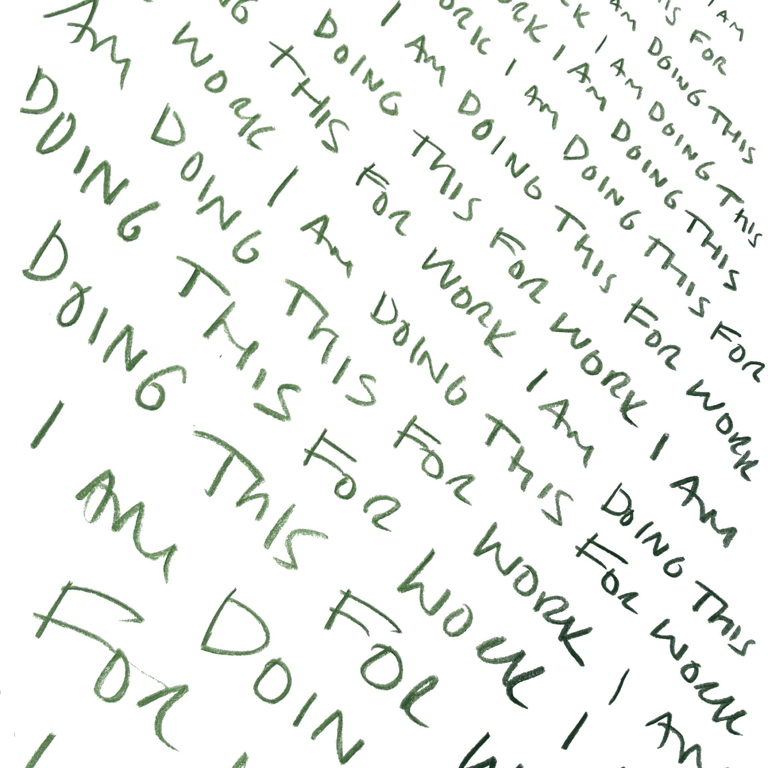 I AM
IS FOR
AM DOING THIS
K I AM DOING THIS
ORK I AM DOING THIS
ORK I AM DOING THIS FOR
I AM DOING THIS FOR WORK
DOING THIS FOR WORK I AM
NG THIS FOR WORK I AM DOING THIS
WORK I AM DOING THIS FOR WORK
AM DOING THIS FOR WORK I AM
DOING THIS FOR WORK I
DOING THIS FOR W
I AM DOIN
FOR